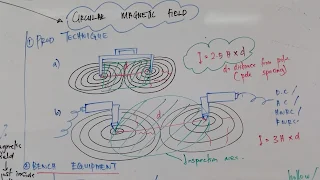 CIRCULAR MAGNETIC FIELD
① PROD TECHNIQUE
I = 2.5 H x d
d = distance from pole
(pole spacing)
a)
b)
d
D.C/
A.C/
HWRC/
FWRC
I = 3H x d
Inspection area.
② BENCH EQUIPMENT
agnetic
field
just inside
hollow/